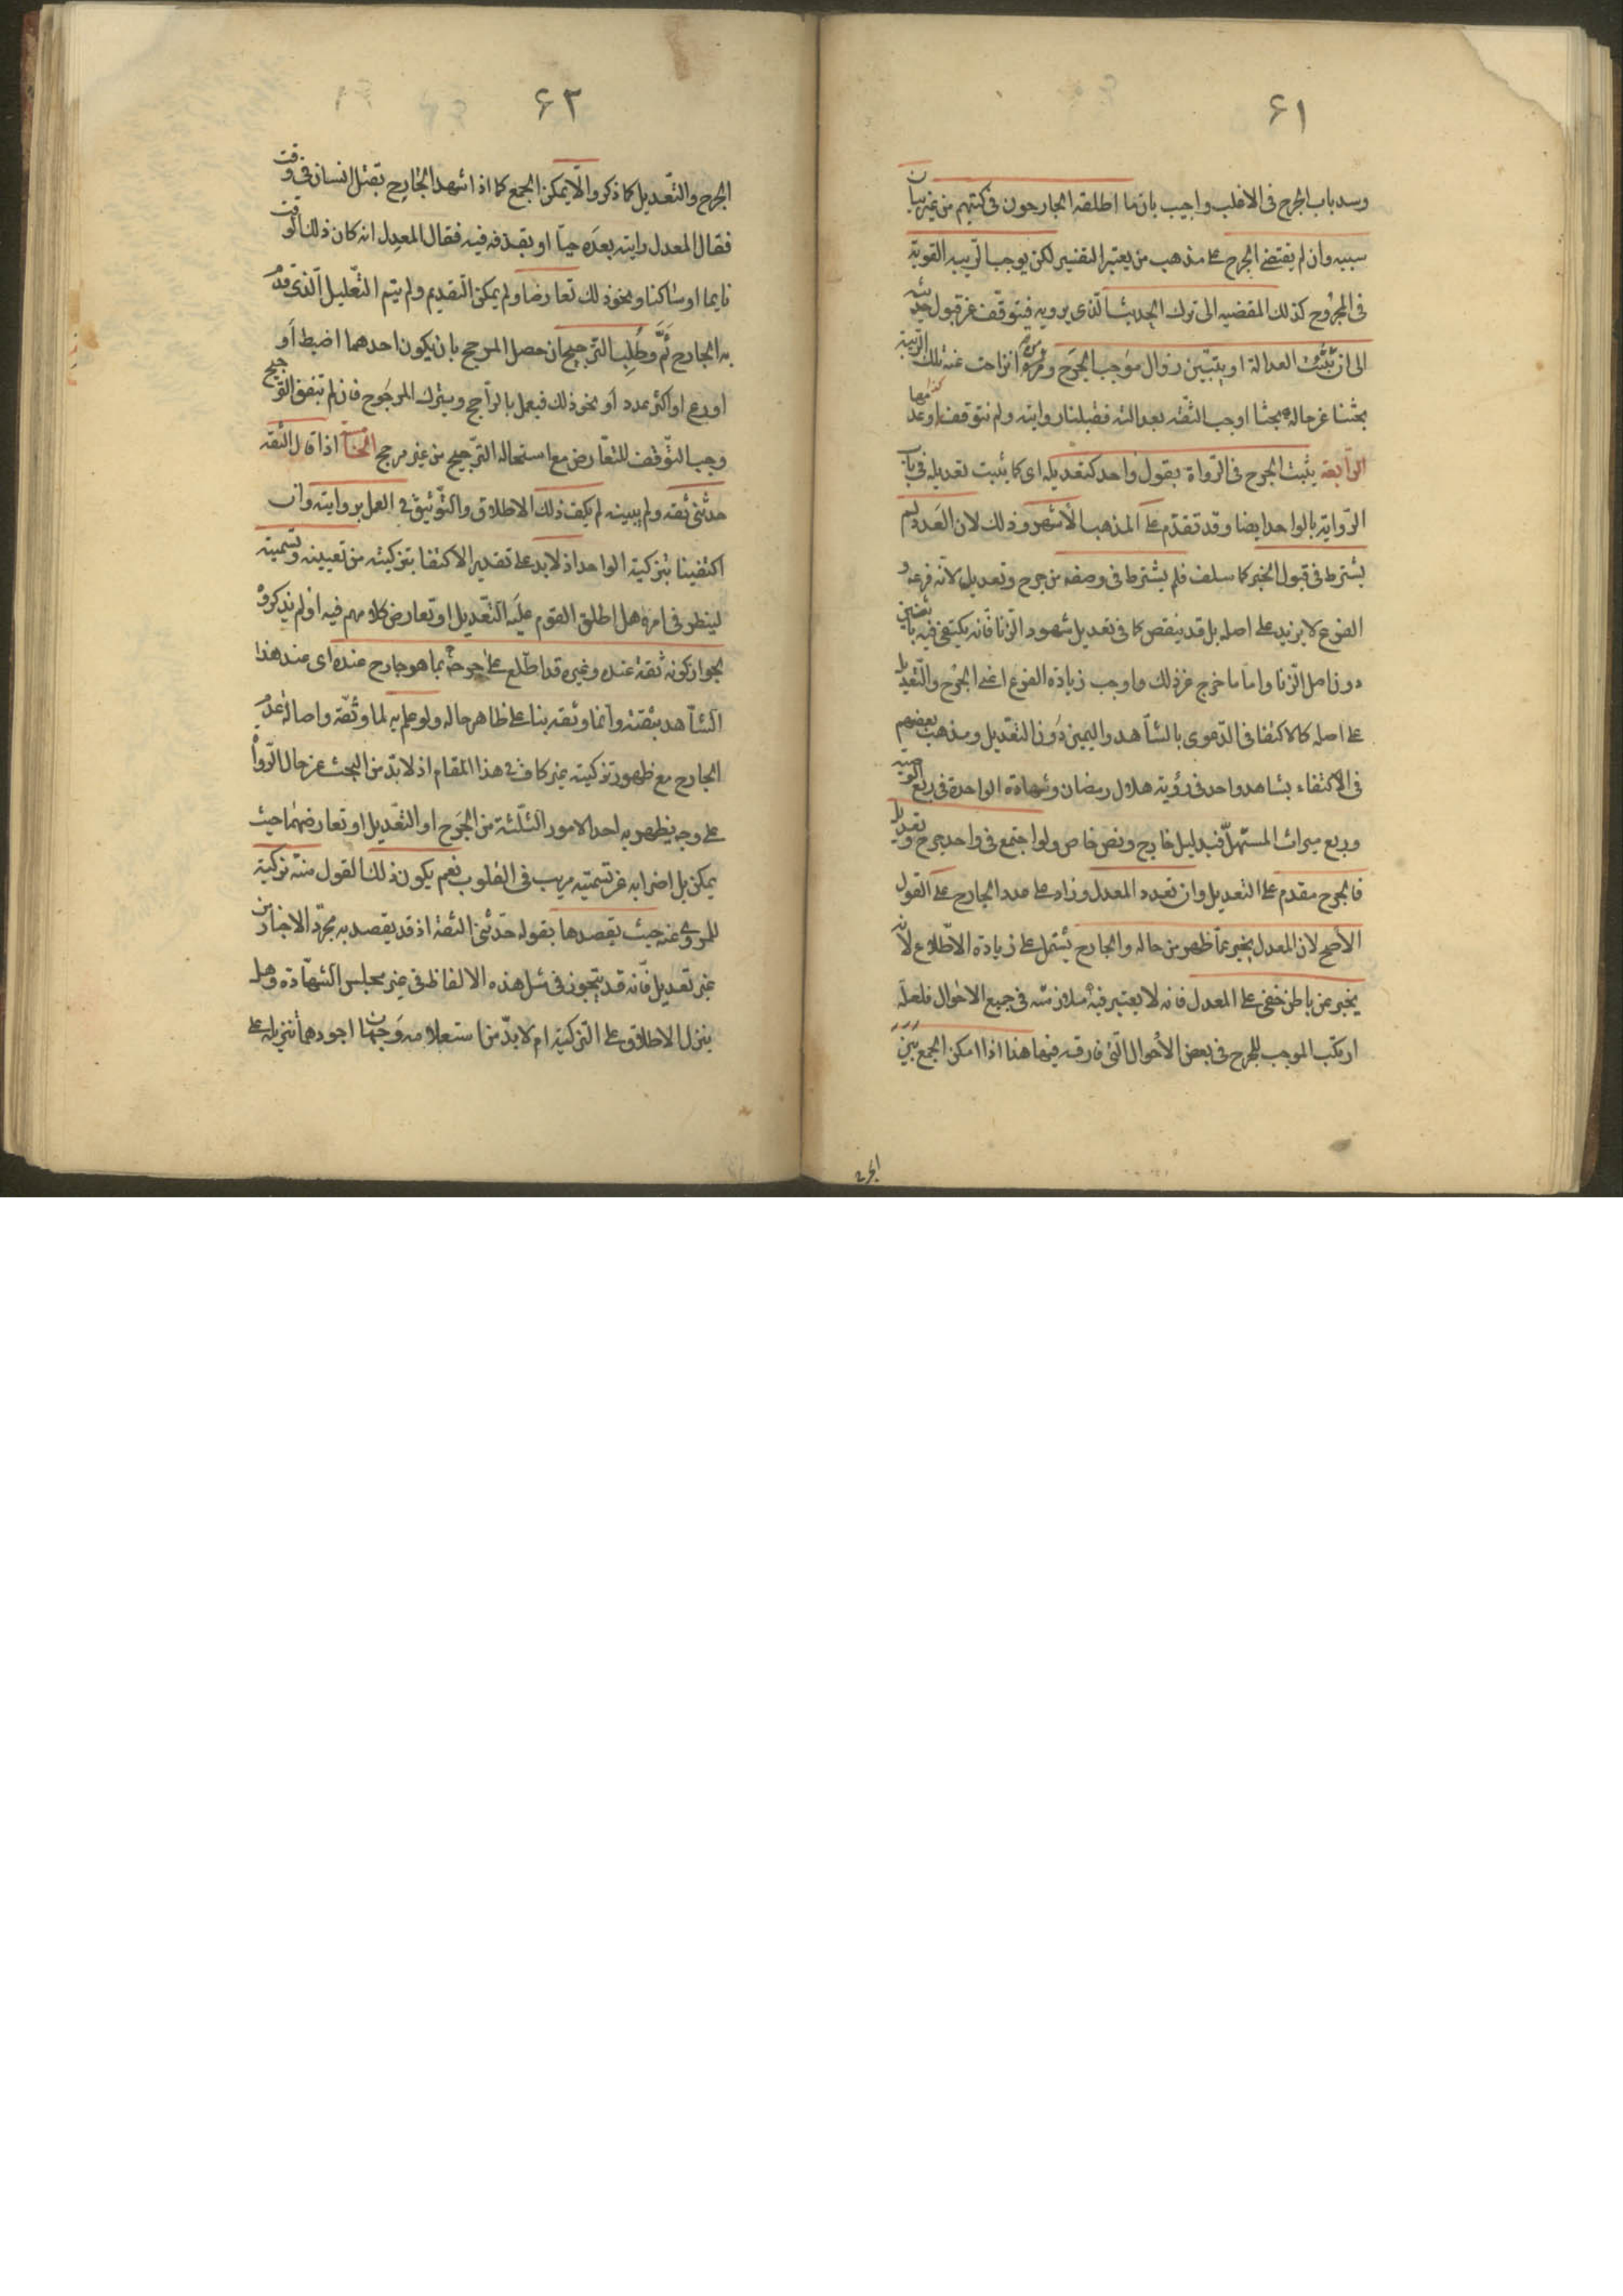 ۶۱
وسد باب الجرح فى الاغلب واجيب بان ما اطلقه الجارحون فى كتبهم من غير بيان
سببه وان لم يقتض الجرح على مذهب من يعتبر التفسير لكن يوجب الريبه القويه
فى المجروح كذلك المفضيه الى ترك الحديث الذى يرويه فيتوقف عن قبول حديثه
الى ان تثبت العدالة او يتبين زوال موجب الجرح ومن انزاحت عنه تلك الريبة
بحثنا عن حاله بحثا اوجب الثقه بعدالته فقبلنا روايته ولم نتوقف او عدمها
الرابعة يثبت الجرح فى الرواة بقول واحد كتعديله اى كما يثبت تعديله فى باب
الرواية بالواحد ايضا وقد تقدم على المذهب الاشهر وذلك لان العدد لم
يشترط فى قبول الخبر كما سلف فلم يشترط فى وصفه من جرح وتعديل لانه فرعه و
الفرع لا يزيد على اصله بل قد ينقص كما فى تعديل شهود الزنا فانه يكتفى فيه باثنين
دون اصل الزنا واما ما خرج عن ذلك واوجب زيادة الفرع اعنى الجرح والتعديل
على اصله كالاكتفا فى الدعوى بالشاهد واليمين دون التعديل ومذهب بعضهم
فى الاكتفاء بشاهد واحد فى رؤية هلال رمضان وشهادة الواحدة فى ربع الوصية
وربع ميراث المستهل فبدليل خارج ونص خاص ولو اجتمع فى واحد جرح وتعديل
فالجرح مقدم على التعديل وان تعدد المعدل وزاد على عدد الجارح على القول
الاصح لان المعدل يخبر عما ظهر من حاله والجارح يشتمل على زيادة الاطلاع لانه
يخبر عن باطن خفى على المعدل فانه لا يعتبر فيه ملازمته فى جميع الاحوال فلعله
ارتكب الموجب للجرح فى بعض الاحوال التى فارقه فيها هذا اذا امكن الجمع بين
الجرح
۶۲
الجرح والتعديل كما ذكر والا يمكن الجمع كما اذا شهد الجارح بقتل انسان فى وقت
فقال المعدل رايته بعده حيا او يقذفه فيه فقال المعدل انه كان ذلك الوقت
نايما او ساكتا ونحو ذلك تعارضا ولم يمكن التقديم ولم يتم التعليل الذى قدم
به الجارح ثم وطلب الترجيح ان حصل المرجح بان يكون احدهما اضبط او
اورع او اكثر عدد او نحو ذلك فيعمل بالراجح ويترك المرجوح فان لم يتفق الترجيح
وجب التوقف للتعارض مع استحاله الترجيح من غير مرجح الخامسة اذا قال الثقه
حدثنى ثقه ولم يبينه لم يكف ذلك الاطلاق والتوثيق فى العمل بروايته وان
اكتفينا بتزكية الواحد اذ لا بد على تقدير الاكتفا بتزكيته من تعيينه وتسميته
لينظر فى امره هل اطلق القوم عليه التعديل او تعارض كلامهم فيه او لم يذكروه
لجواز كونه ثقة عنده وغيره قد اطلع على جرحه بما هو جارح عنده اى عند هذا
الشاهد بثقته وانما وثقه بنا على ظاهر حاله ولو علم به لما وثقه واصالة عدم
الجارح مع ظهور تزكيته غير كاف فى هذا المقام اذ لا بد من البحث عن حال الرواة
على وجه يظهر به احد الامور الثلثة من الجرح او التعديل او تعارضهما حيث
يمكن بل اضرابه عن تسميته مريب فى القلوب نعم يكون ذلك القول منه تزكية
للمروى عنه حيث يقصدها بقوله حدثنى الثقة اذ قد يقصد به مجرد الاخبار من
غير تعديل فانه قد يتجوز فى مثل هذه الالفاظ فى غير مجلس الشهادة وهل
ينزل الاطلاق على التزكية ام لا بد من استعلامه وجهان اجودهما تنزيله على